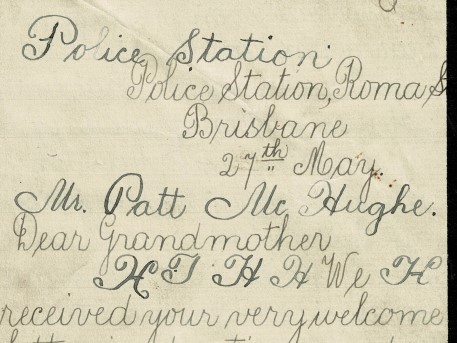 Police Station
Police Station, Roma S
Brisbane
27th May
Mr. Patt Mc Hughe.
Dear Grandmother
H I H H We H
received your very welcome